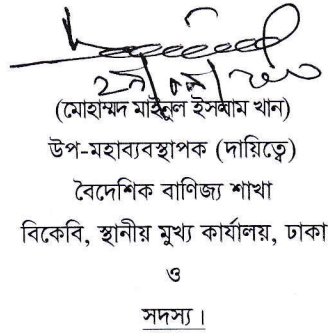 (মোহাম্মদ মাইনুল ইসলাম খান)
উপ-মহাব্যবস্থাপক (দায়িত্বে)
বৈদেশিক বাণিজ্য শাখা
বিকেবি, স্থানীয় মুখ্য কার্যালয়, ঢাকা
ও
সদস্য।